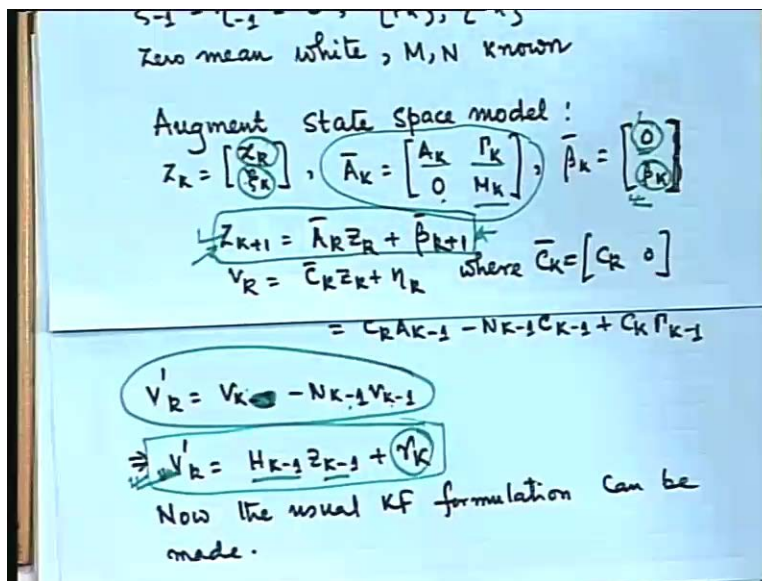 Zero mean white, M, N known
Augment state space model:
Z_K = [x_K ξ_K], Ā_K = [A_K Γ_K 0 M_K], β̄_K = [0 β_K]
Z_{K+1} = Ā_K Z_K + β̄_{K+1}
V_K = C̄_K Z_K + η_K where C̄_K = [C_K 0]
= C_K A_{K-1} - N_{K-1} C_{K-1} + C_K Γ_{K-1}
V'_K = V_K - N_{K-1} V_{K-1}
⇒ V'_K = H_{K-1} Z_{K-1} + γ_K
Now the usual KF formulation can be
made.